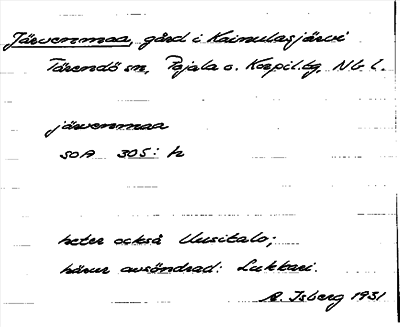 Järvenmaa, gård i Kainulasjärvi
Tärendö sn, Pajala o. Korpil. tg, Nb. l.
järvenmaa
SOA 305: h
heter också Uusitalo;
härur avsöndrad: Lukkari.
A. Isberg 1931